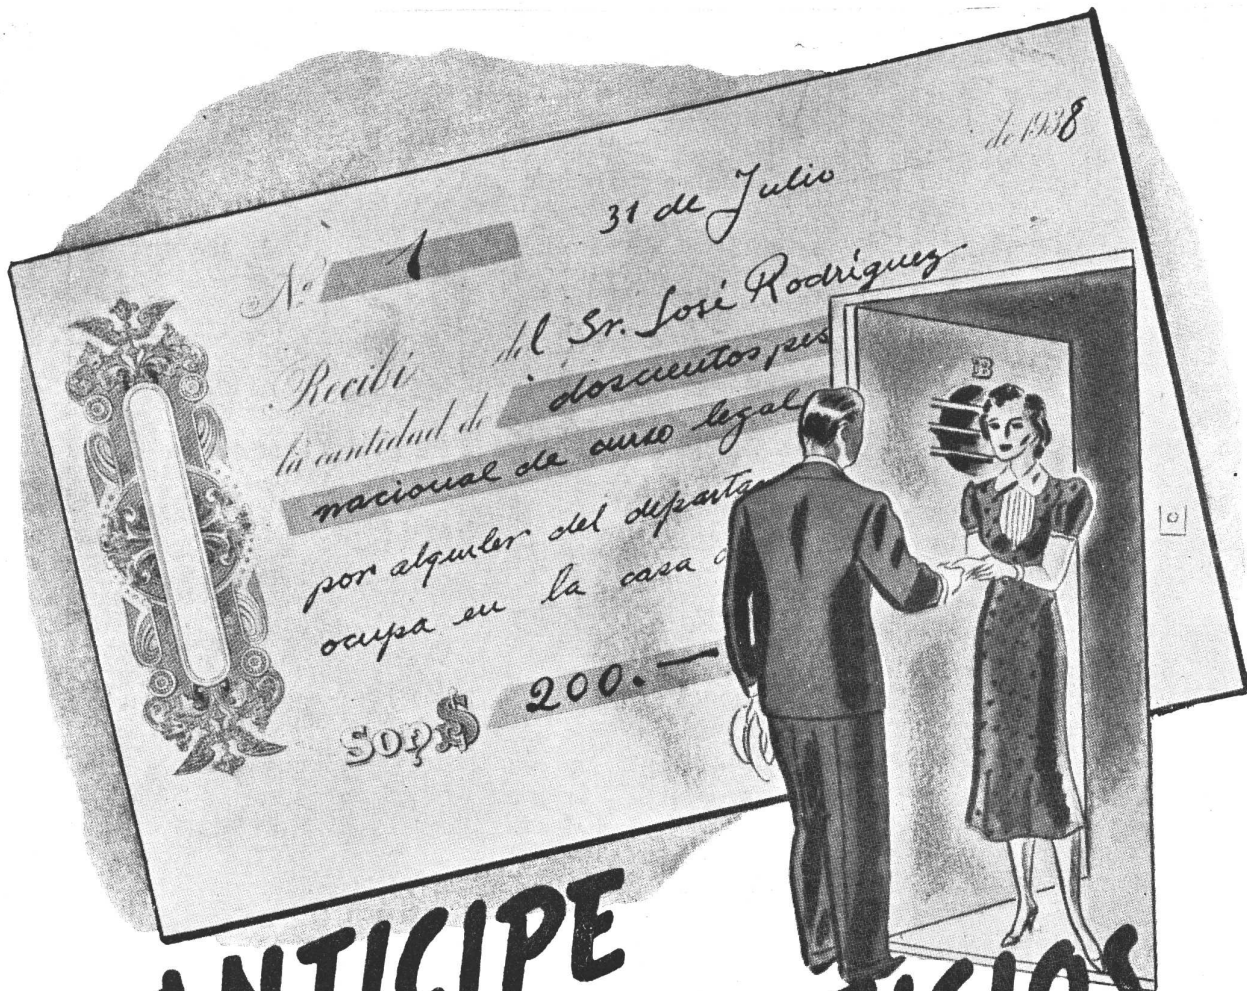 de 1938
31 de Julio
Nº 1
Recibí del Sr. José Rodríguez
la cantidad de doscientos pes
nacional de curso legal
por alquiler del departa
ocupa en la casa
Son $ 200.—
B
ANTICIPE